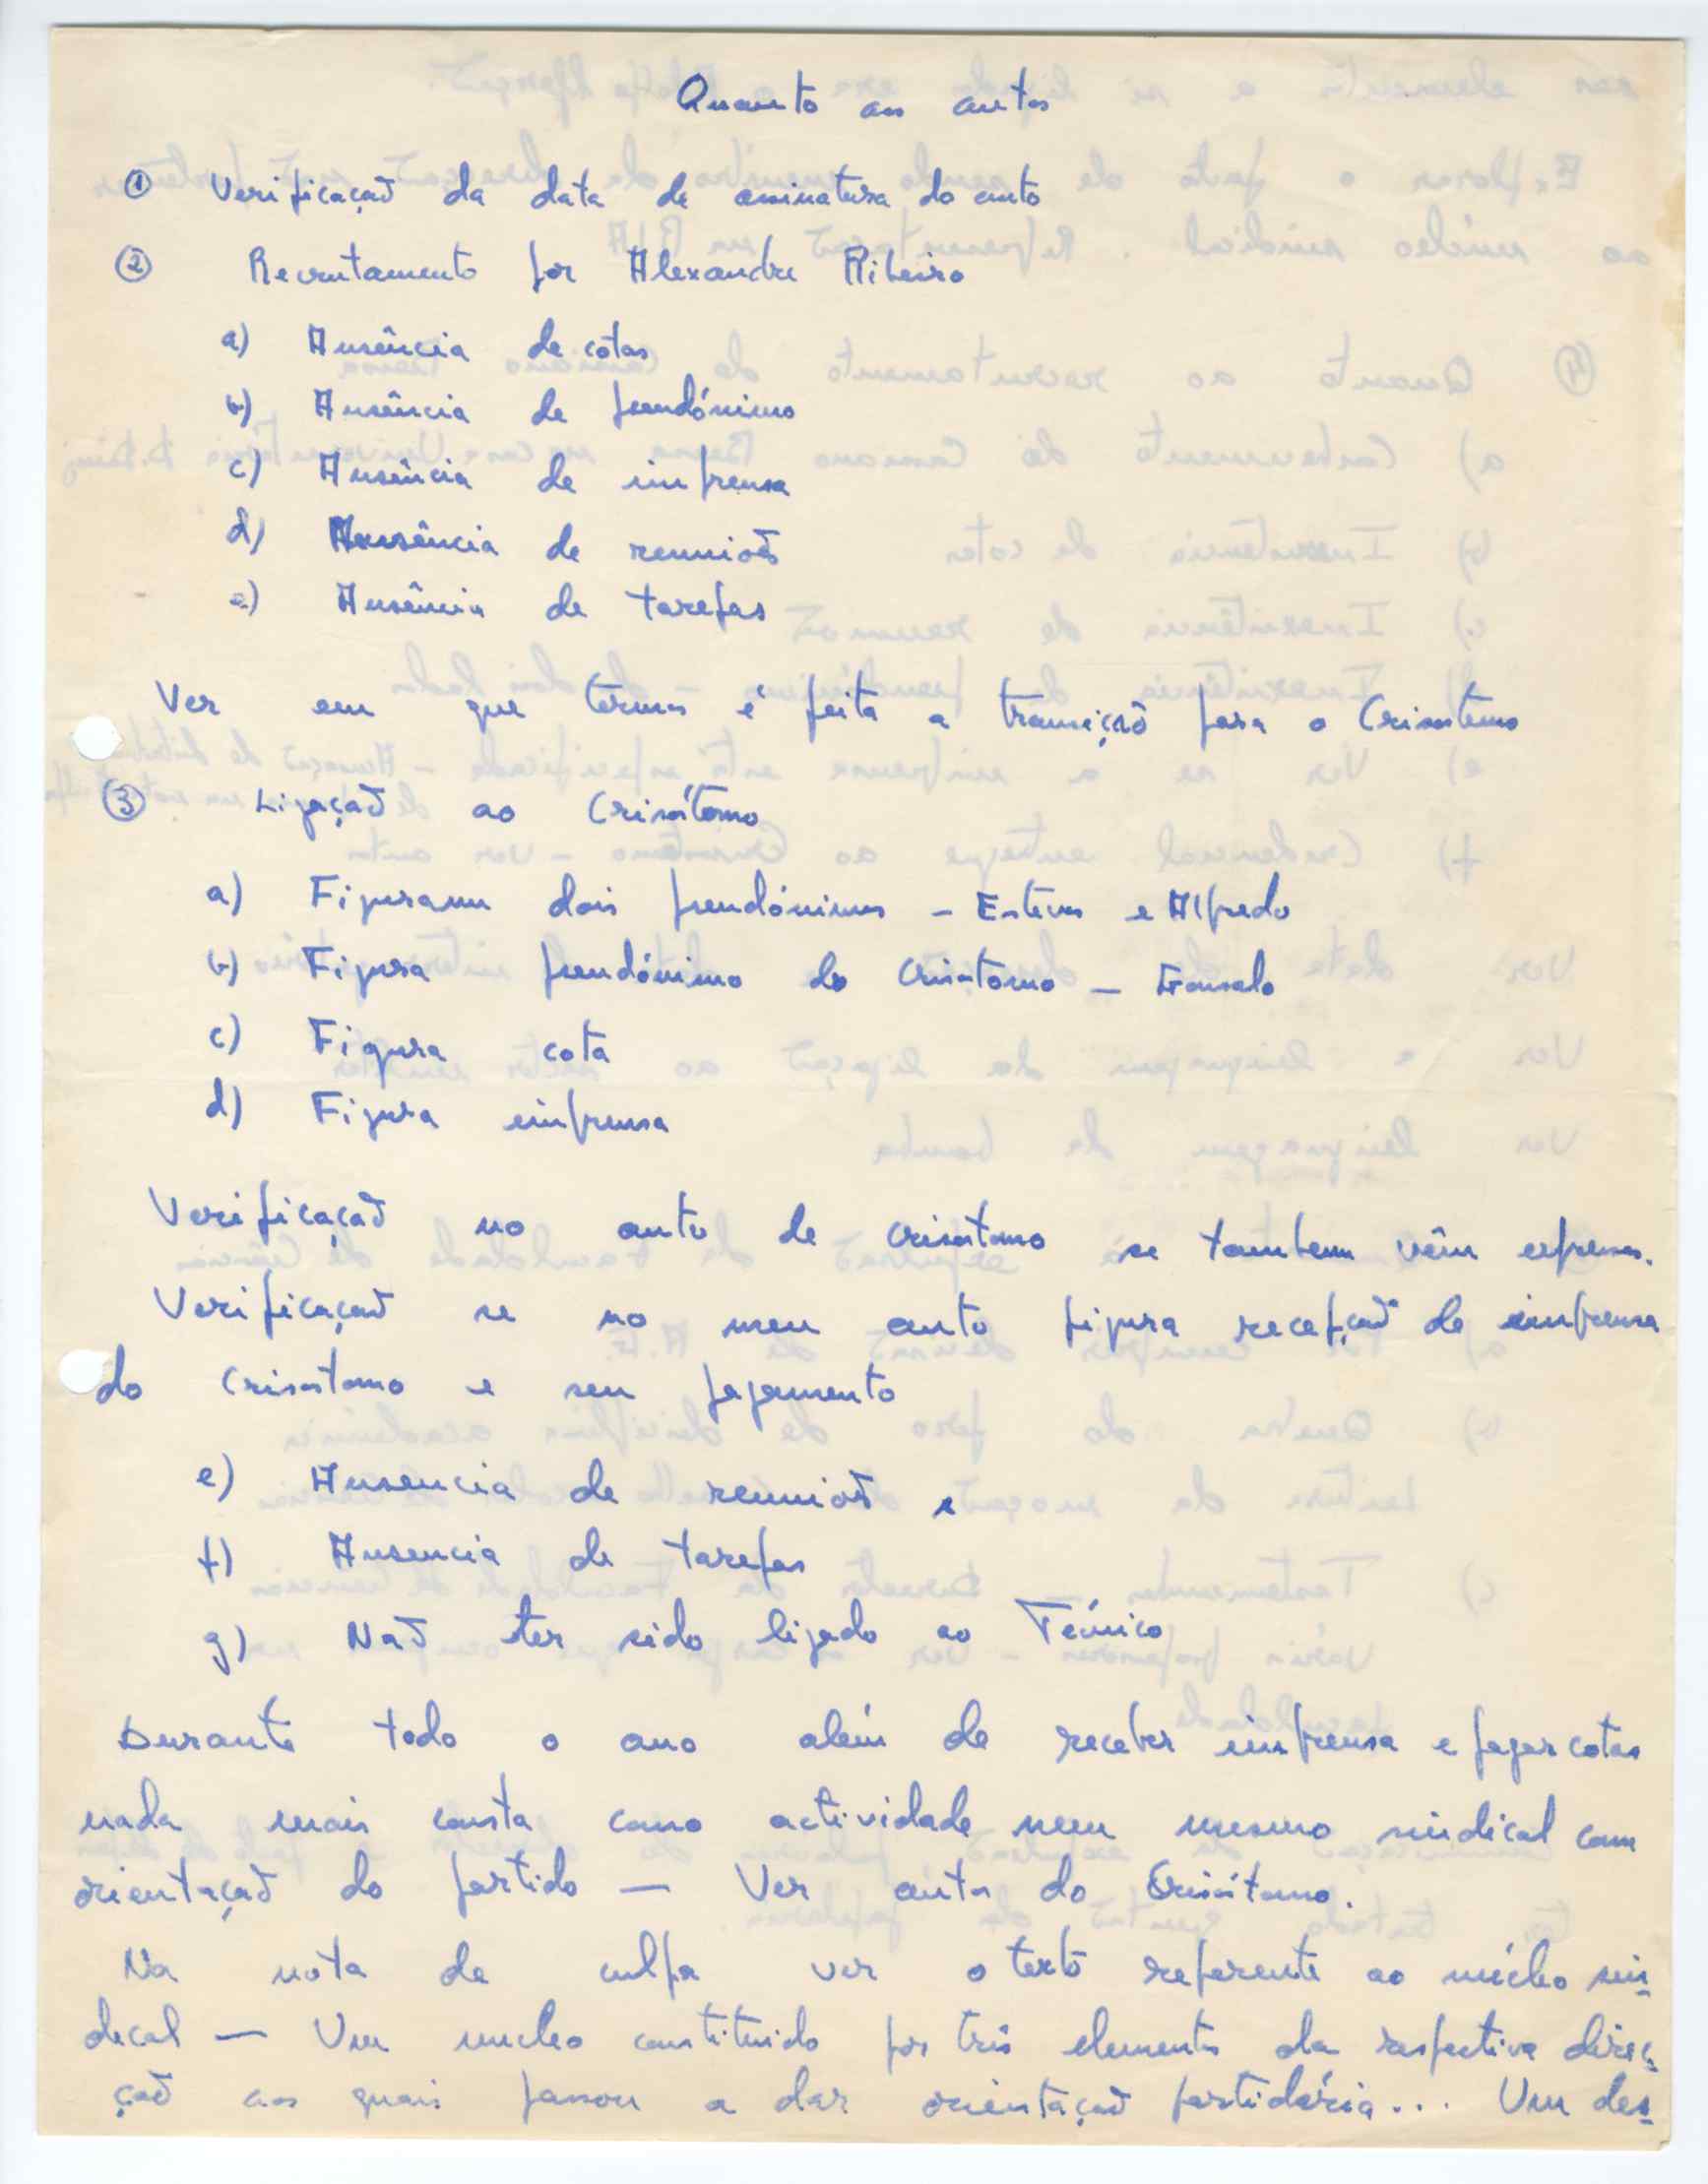 Quanto aos autos
① Verificação da data de assinatura do auto
② Recrutamento por Alexandre Ribeiro
a) Ausência de cotas
b) Ausência de pseudónimo
c) Ausência de imprensa
d) Ausência de reuniões
e) Ausência de tarefas
Ver em que termos é feita a transição para o Crisostomo
③ Ligação ao Crisóstomo
a) Figuram dois pseudónimos - Esteves e Alfredo
b) Figura pseudónimo do Crisostomo - Gonsalo
c) Figura cota
d) Figura imprensa
Verificação no auto de Crisostomo se tambem vêm expressos.
Verificação se no meu auto figura recepção de imprensa
do Crisostomo e seu pagamento
e) Ausencia de reuniões e
f) Ausencia de tarefas
g) Não ter sido ligado ao Técnico
Durante todo o ano além de receber imprensa e pagar cotas
nada mais consta como actividade nem mesmo sindical com
orientação do partido — Ver autos do Crisóstomo.
Na nota de culpa ver o texto referente ao núcleo sin-
dical — Um nucleo constituido por três elementos da respectiva direc-
ção aos quais passou a dar orientação partidária... Um des-